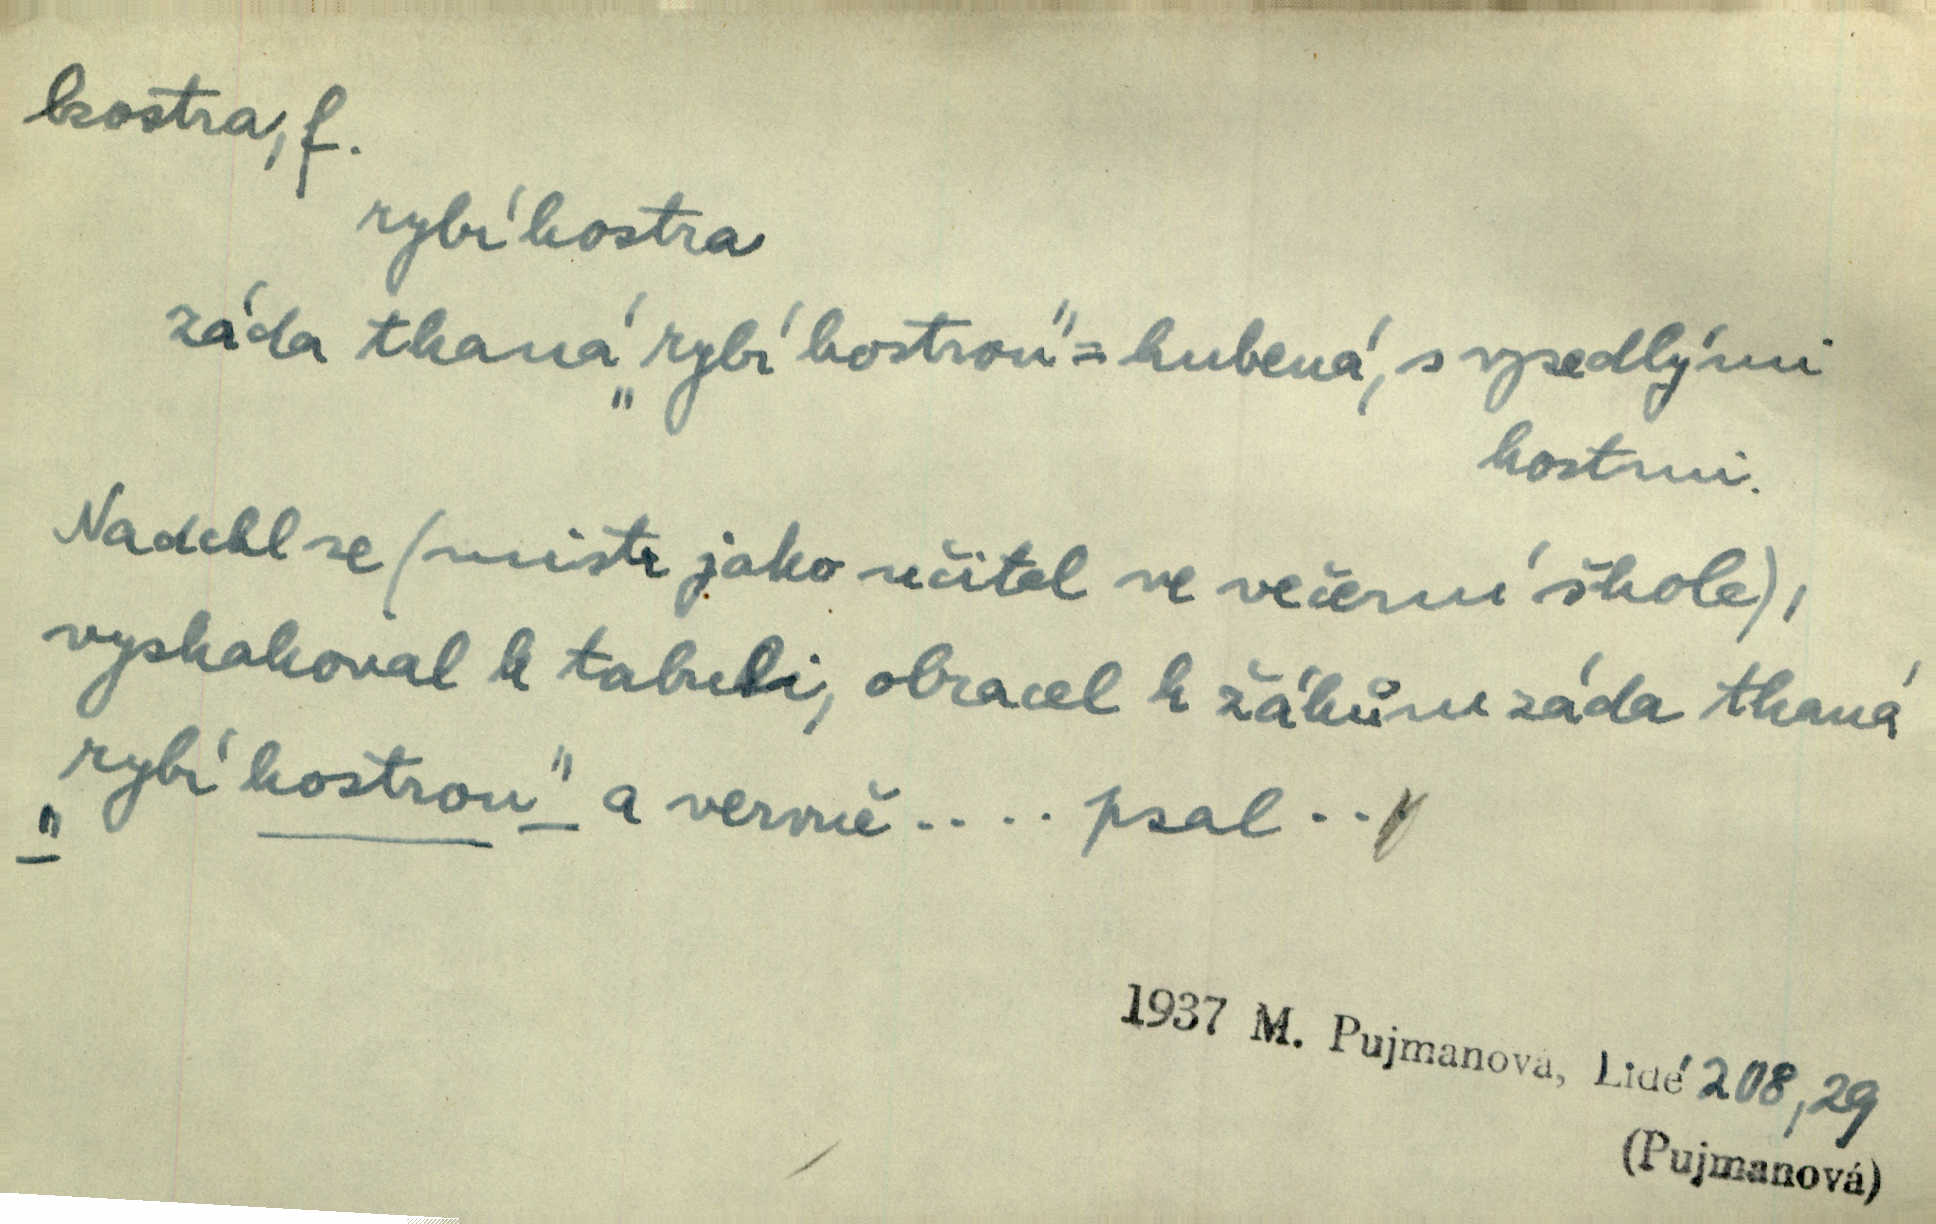 kostra, f.
rybí kostra
záda tkaná „rybí kostrou" = hubená, s vysedlými
kostmi.
Nadchl se (mistr jako učitel ve večerní škole),
vyskakoval k tabuli, obracel k žákům záda tkaná
„rybí kostrou" a vervně .... psal ..
1937 M. Pujmanová, Lidé 208,29
(Pujmanová)